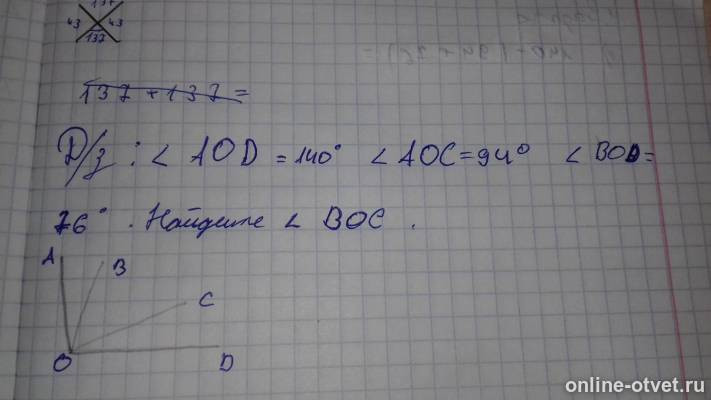 137
43 43
137
137 + 137 =
Д/з : < AOD = 140° < AOC = 94° < BOD =
76° . Найдите < BOC .
A
B
C
O
D
online-otvet.ru